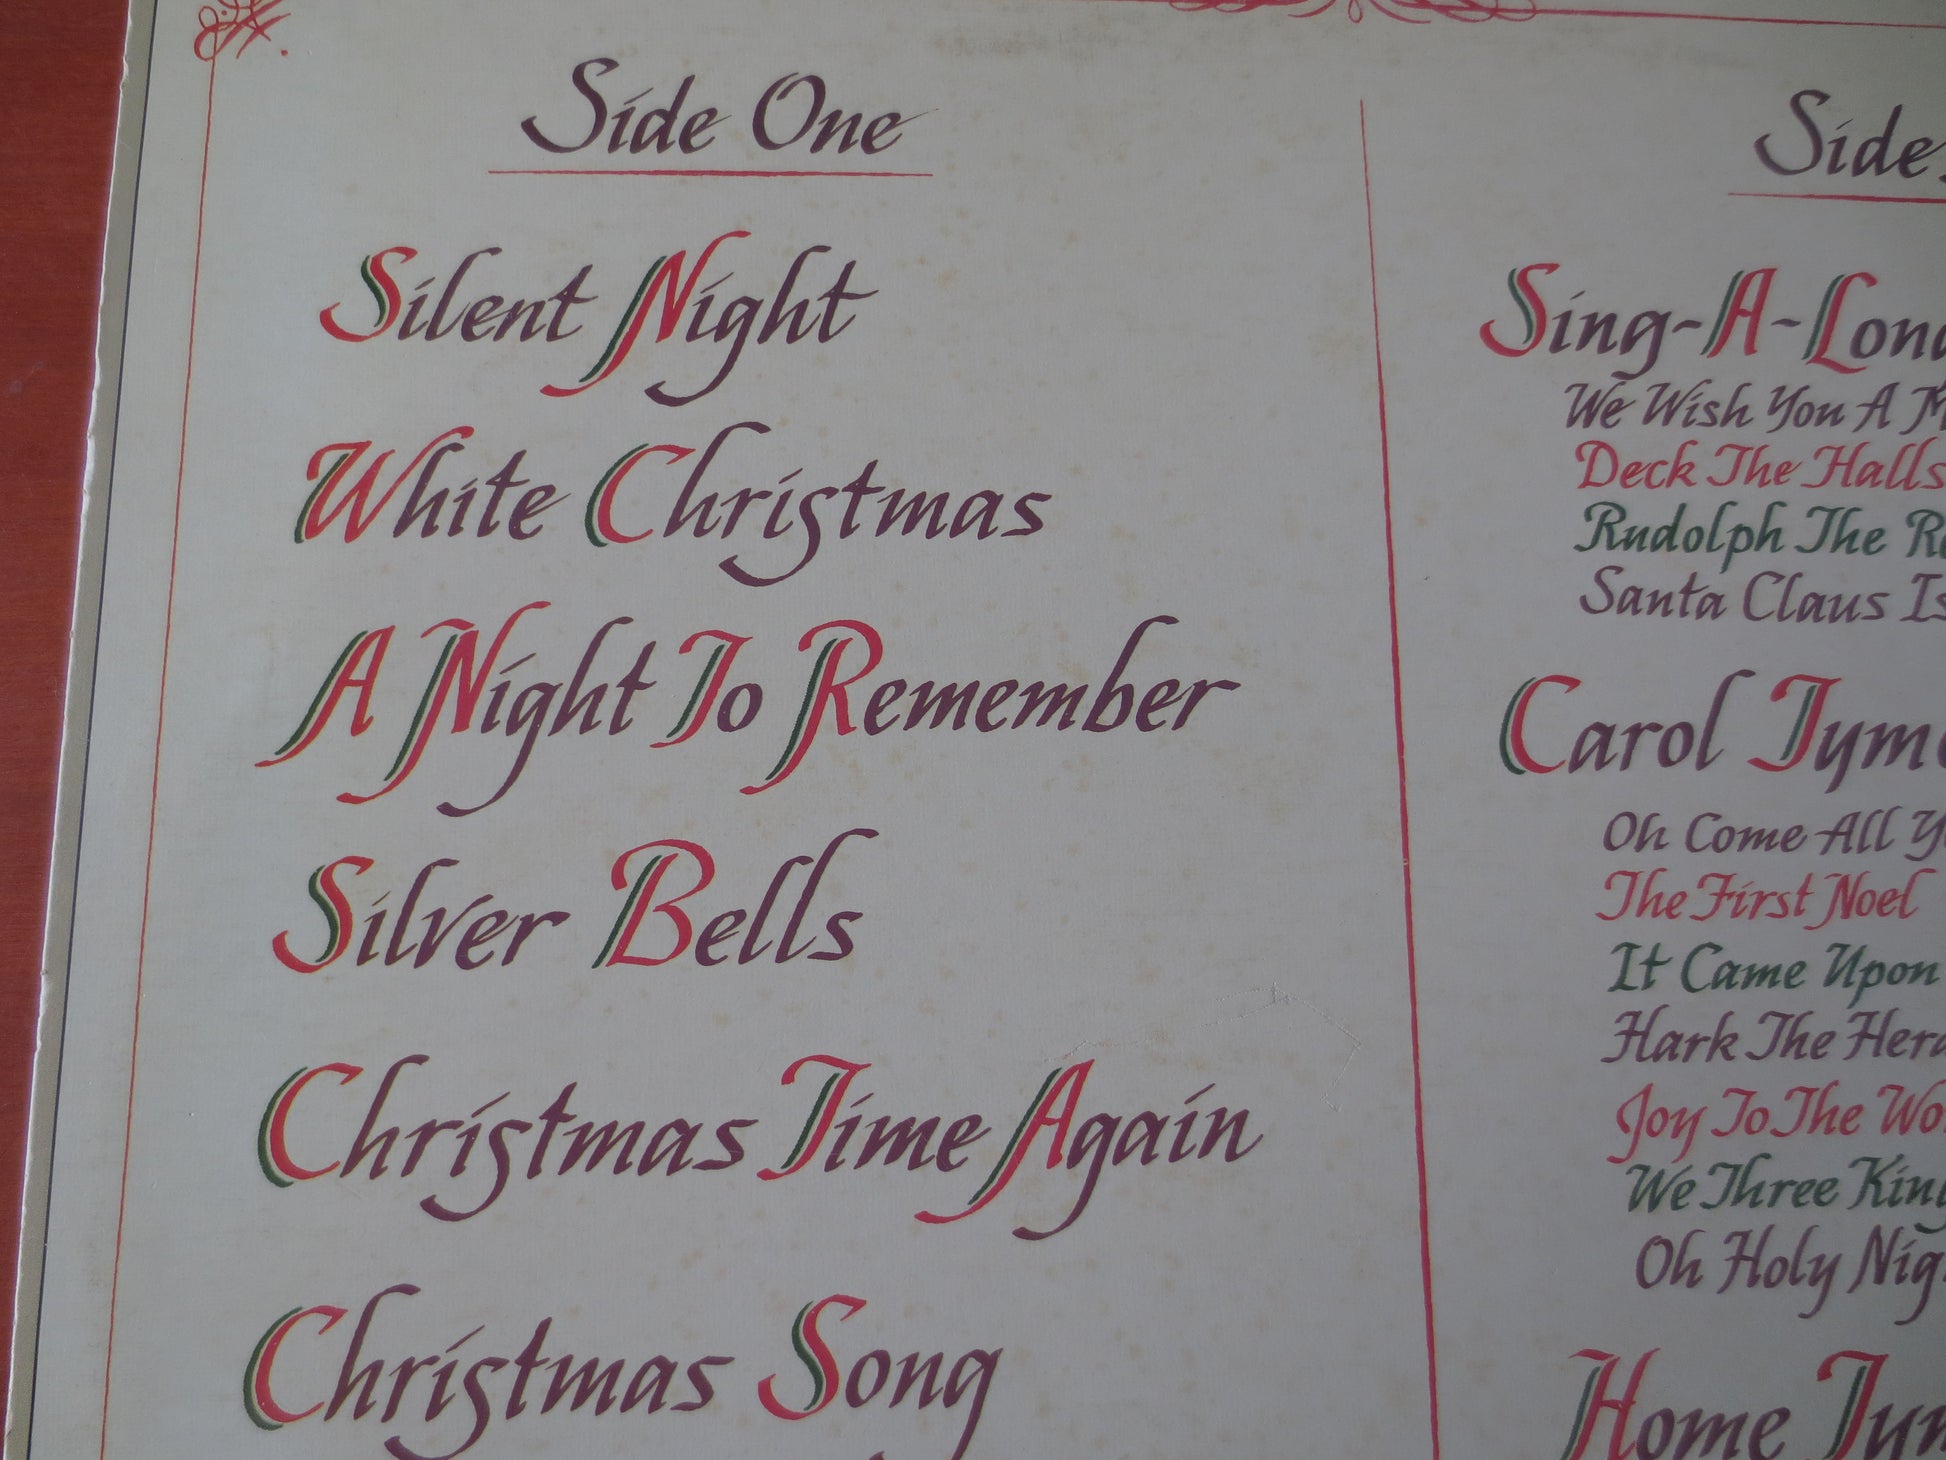 Side One
Silent Night
White Christmas
A Night To Remember
Silver Bells
Christmas Time Again
Christmas Song
Side
Sing-A-Long
We Wish You A
Deck The Halls
Rudolph The
Santa Claus Is
Carol Tyme
Oh Come All
The First Noel
It Came Upon
Hark The
Joy To The
We Three
Oh Holy
Home